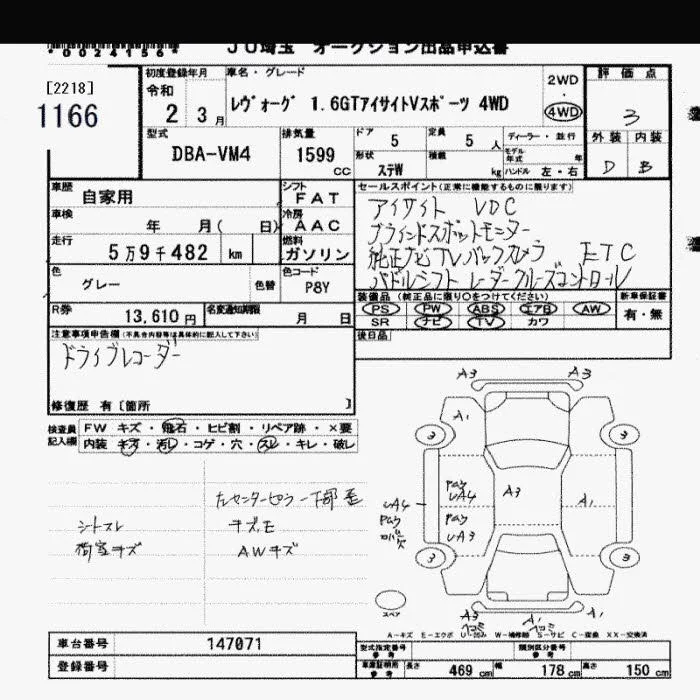 *0024156*
JU埼玉 オークション出品申込書
[2218]
1166
初度登録年月
令和
2 3月
車名・グレード
レヴォーグ 1.6GTアイサイトVスポーツ 4WD
2WD
・
4WD
評価点
3
外装 内装
D B
型式
DBA-VM4
排気量
1599
CC
ドア
5
定員
5 人
形状
ステW
積載
kg
ディーラー・並行
モデル年式 年
ハンドル 左・右
車歴
自家用
シフト
FAT
車検
年 月( 日)
冷房
AAC
走行
5万9千482 km
燃料
ガソリン
色
グレー
色替
色コード
P8Y
R券
13,610円
名変通知期限
月 日
セールスポイント(正常に機能するものに限ります)
アイサイト VDC
ブラインドスポットモニター
純正ナビTVバックカメラ ETC
パドルシフト レーダークルーズコントロール
装備品(純正品に限り○をつけてください)
PS PW ABS エアB AW
SR ナビ TV カワ
新車保証書
有・無
後日品
注意事項申告欄(不具合内容等は具体的に記入して下さい)
ドライブレコーダー
修復歴 有〔箇所 〕
検査員記入欄
FW キズ・飛石・ヒビ割・リペア跡・×要
内装 キズ・汚レ・コゲ・穴・スレ・キレ・破レ
左センターピラー下部歪
シートスレ
キズ、モ
荷室キズ
AWキズ
A3 A3
A1
3 3
A3
A1
UA4
UA4
UA3
3 3
スペア
A3
A1
A1
A-キズ E-エクボ U-凹み W-補修跡 S-サビ C-腐食 XX-交換済
車台番号
147071
登録番号
型式指定番号
参考
類別区分番号
参考
車庫証明用
参考
長さ 469 cm 幅 178 cm 高さ 150 cm